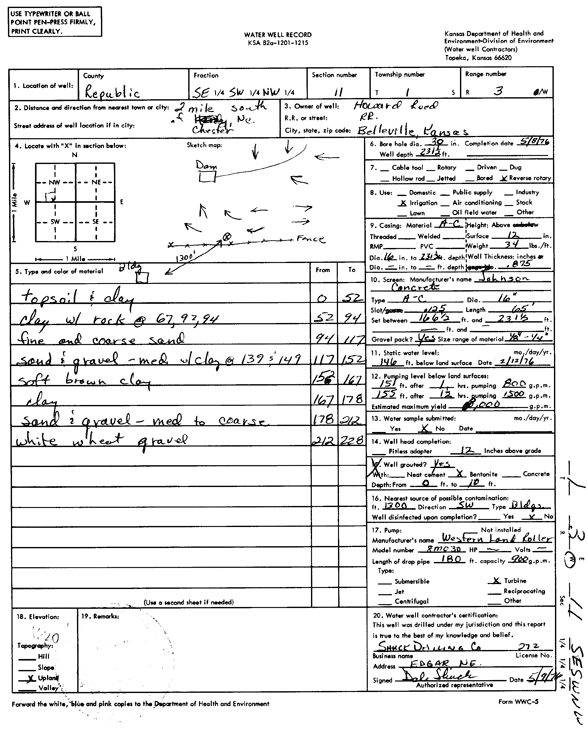 USE TYPEWRITER OR BALL
POINT PEN-PRESS FIRMLY,
PRINT CLEARLY.
WATER WELL RECORD
KSA 82a-1201-1215
Kansas Department of Health and
Environment-Division of Environment
(Water well Contractors)
Topeka, Kansas 66620
1. Location of well: County Republic Fraction SE 1/4 SW 1/4 NW 1/4 Section number 11 Township number T 1 S Range number R 3 E/W
2. Distance and direction from nearest town or city: 2 mile south
of Chester, Ne.
Street address of well location if in city:
3. Owner of well: Howard Reed
R.R. or street: RR.
City, state, zip code: Belleville, Kansas
4. Locate with "X" in section below:
N
NW NE
W E
SW SE
S
1 Mile
1 Mile
Sketch map:
Dam
Fence
1300'
Bldg
6. Bore hole dia. 30 in. Completion date 5/8/76
Well depth 231½ ft.
7. Cable tool Rotary Driven Dug
Hollow rod Jetted Bored X Reverse rotary
8. Use: Domestic Public supply Industry
X Irrigation Air conditioning Stock
Lawn Oil field water Other
9. Casing: Material A-C Height: Above
Threaded Welded Surface 12 in.
RMP PVC Weight 34 lbs./ft.
Dia. 16 in. to 231½ ft. depth Wall Thickness: inches or
Dia. — in. to — ft. depth .875
5. Type and color of material From To
topsoil & clay 0 52
clay w/ rock @ 67, 93, 94 52 94
fine and coarse sand 94 117
sand & gravel - med w/clay @ 139 & 149 117 152
soft brown clay 152 167
clay 167 178
sand & gravel - med to coarse 178 212
white wheat gravel 212 228
(Use a second sheet if needed)
10. Screen: Manufacturer's name Johnson
Concrete
Type A-C Dia. 16"
Slot .125 Length 65'
Set between 166½ ft. and 231½ ft.
ft. and ft.
Gravel pack? Yes Size range of material 1/8"-1/4"
11. Static water level: mo./day/yr.
146 ft. below land surface Date 2/12/76
12. Pumping level below land surfaces:
151 ft. after 1 hrs. pumping 800 g.p.m.
152 ft. after 12 hrs. pumping 1500 g.p.m.
Estimated maximum yield g.p.m.
13. Water sample submitted: mo./day/yr.
Yes X No Date
14. Well head completion:
Pitless adapter 12 Inches above grade
15. Well grouted? Yes
With: Neat cement X Bentonite Concrete
Depth: From 0 ft. to 10 ft.
16. Nearest source of possible contamination:
ft. 1300 Direction SW Type Bldgs
Well disinfected upon completion? Yes X No
17. Pump: Not installed
Manufacturer's name Western Land Roller
Model number 8MC30 HP — Volts —
Length of drop pipe 180 ft. capacity 900 g.p.m.
Type:
Submersible X Turbine
Jet Reciprocating
Centrifugal Other
18. Elevation:
Topography:
Hill
Slope
X Upland
Valley
19. Remarks:
20. Water well contractor's certification:
This well was drilled under my jurisdiction and this report
is true to the best of my knowledge and belief.
Shuck Drilling Co 272
Business name License No.
Address Edgar Ne.
Signed Dale Shuck Date 5/9/76
Authorized representative
Forward the white, blue and pink copies to the Department of Health and Environment
Form WWC-5
T 1 R 3 W Sec 11 1/4 1/4 1/4 SESWNW